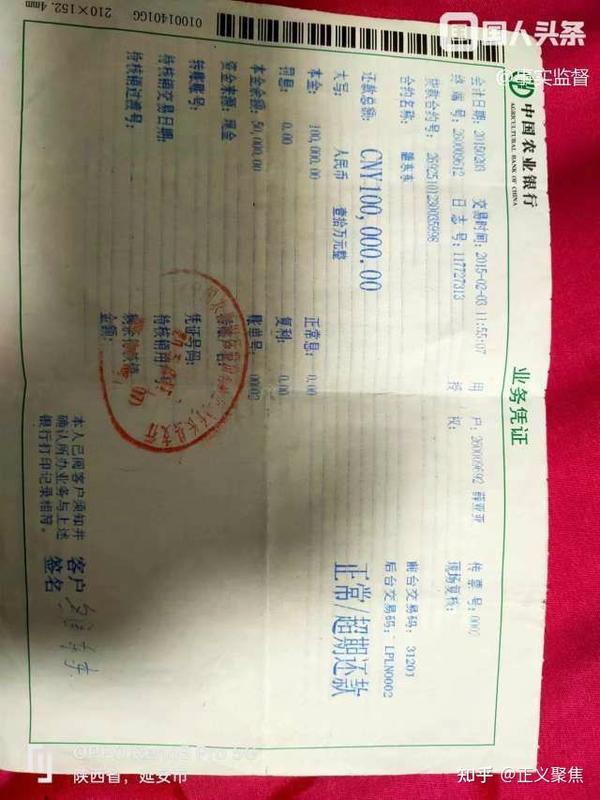 国人头条
@事实监督
中国农业银行
AGRICULTURAL BANK OF CHINA
业务凭证
会计日期: 20150203 交易时间: 2015-02-03 11:55:07 用 户: 260009692 薛亚亚 传 票 号: 0002
终 端 号: 260009612 日 志 号: 117727313 授 权: 现场复核:
贷款合约号: 26925101230035998 前台交易码: 31201
合约名称: 后台交易码: LPLN0002
还款总额: CNY100,000.00 正常/超期还款
大写: 人民币 壹拾万元整
本金: 100,000.00 正常息: 0.00
罚息: 0.00 复利: 0.00
本金余额: 50,000.00 账单号: 00002
资金来源: 现金
转账账号: 凭证号码:
待核销交易日期: 待核销用
待核销过渡号: 金额:
本人已阅客户须知并
确认所办业务与上述
银行打印记录相符。
客户
签名
01001401GG
210×152.4mm
陕西省，延安市
知乎 @正义聚焦